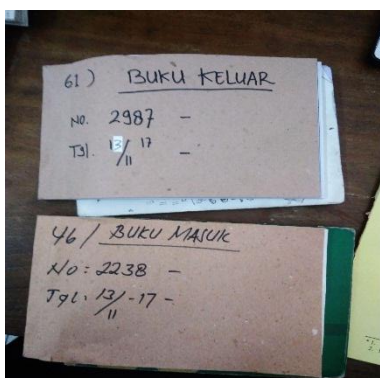 61) BUKU KELUAR
No. 2987 -
Tgl. 13/11 17 -
46/ BUKU MASUK
No: 2238 -
Tgl. 13/11-17-